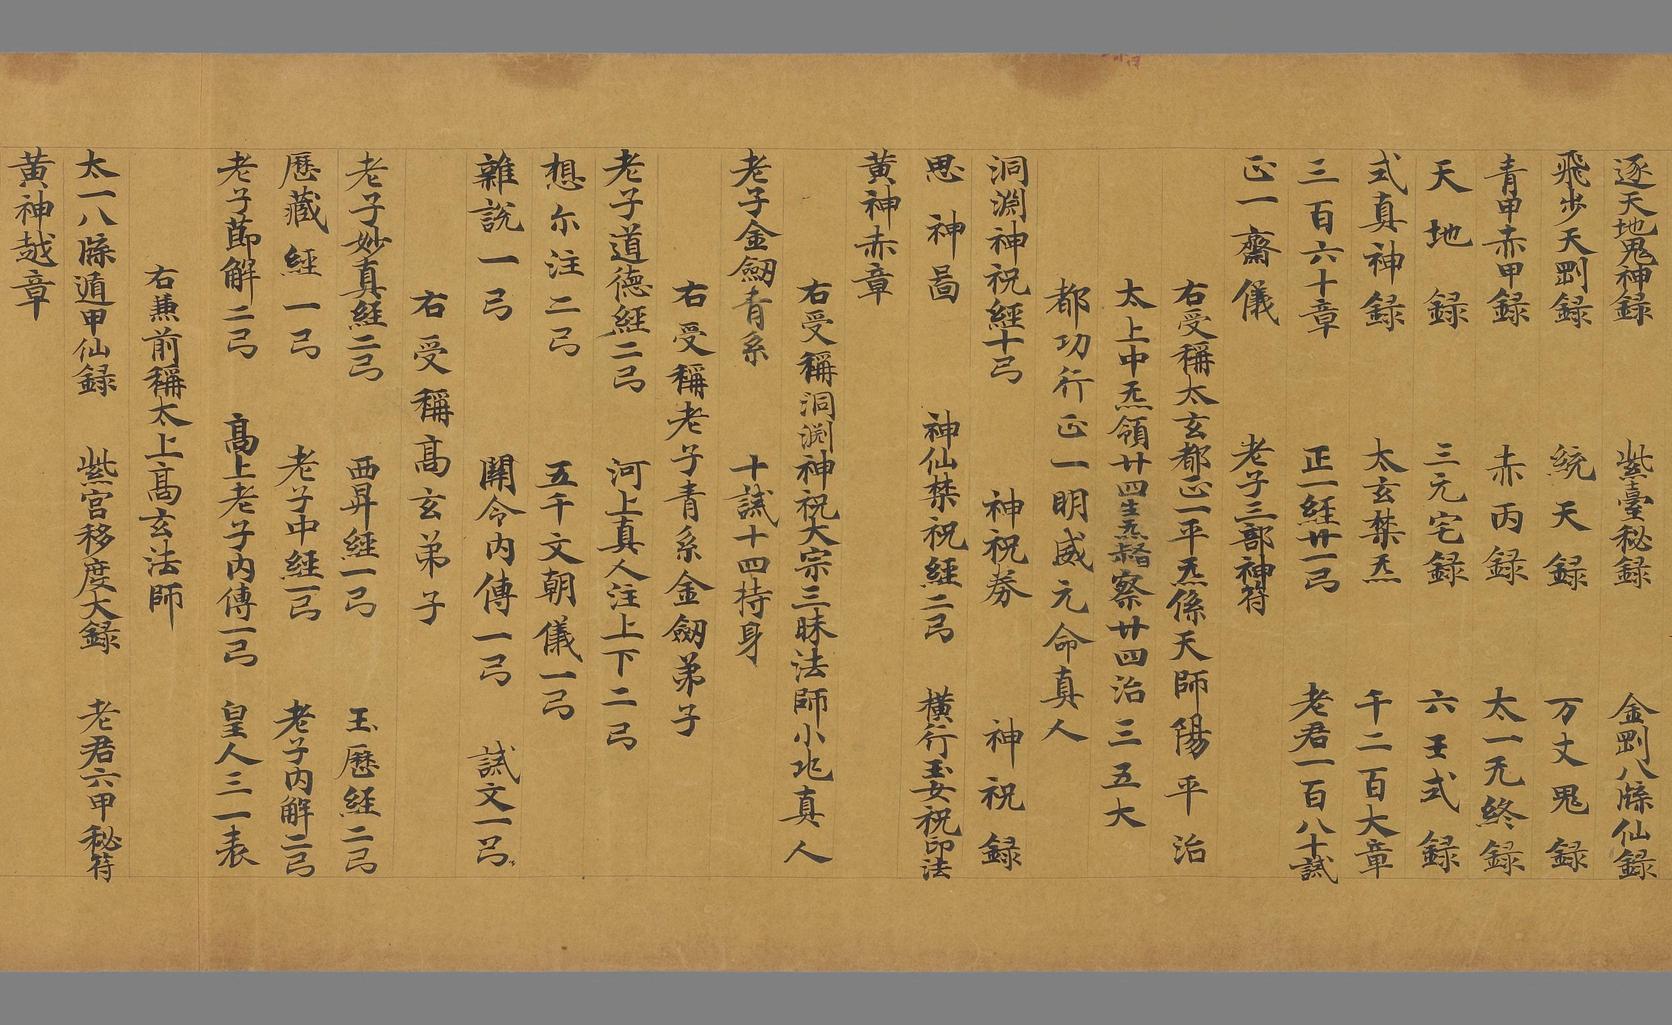 逐天地鬼神録 紫臺秘録 金剛八牒仙録
飛步天剛録 統天録 万丈鬼録
青甲赤甲録 赤丙録 太一无終録
天地録 三元宅録 六壬式録
式真神録 太玄禁炁 千二百大章
三百六十章 正一經廿一弓 老君一百八十試
正一齋儀 老子三部神符
右受稱太玄都正一平炁係天師陽平治
太上中炁領廿四生炁督察廿四治三五大
都功行正一明威元命真人
洞渊神祝經十弓 神祝券 神祝録
思神啚 神仙禁祝經二弓 橫行玉女祝印法
黄神赤章
右受稱洞渊神祝大宗三昧法師小兆真人
老子金劔青糸 十試十四持身
右受稱老子青糸金劔弟子
老子道德經二弓 河上真人注上下二弓
想尔注二弓 五千文朝儀一弓
雜說一弓 關令内傳一弓 試文一弓
右受稱髙玄弟子
老子妙真經二弓 西昇經一弓 玉歷經二弓
歷藏經一弓 老子中經一弓 老子内解二弓
老子節解二弓 髙上老子内傳一弓 皇人三一表
右兼前稱太上髙玄法師
太一八牒遁甲仙録 紫宫移度大録 老君六甲秘符
黄神越章